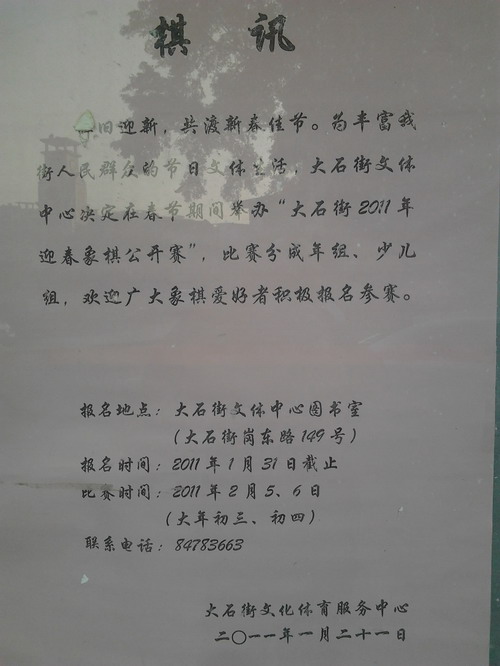 棋 讯
旧迎新，共渡新春佳节。为丰富我
街人民群众的节日文体生活，大石街文体
中心决定在春节期间举办“大石街2011年
迎春象棋公开赛”，比赛分成年组、少儿
组，欢迎广大象棋爱好者积极报名参赛。
报名地点：大石街文体中心图书室
（大石街岗东路149号）
报名时间：2011年1月31日截止
比赛时间：2011年2月5、6日
（大年初三、初四）
联系电话：84783663
大石街文化体育服务中心
二〇一一年一月二十一日